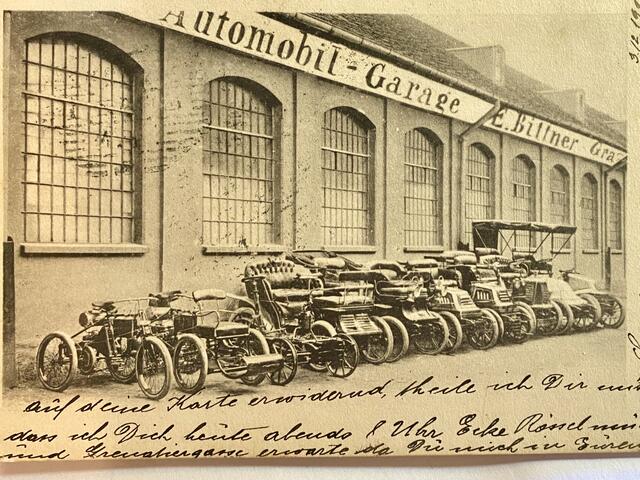 Automobil-Garage E. Bittner Graz
auf deine Karte erwiderend, theile ich Dir mit
dass ich Dich heute abends 8 Uhr Ecke Rössel
und Grenadiergasse erwarte da Du mich in